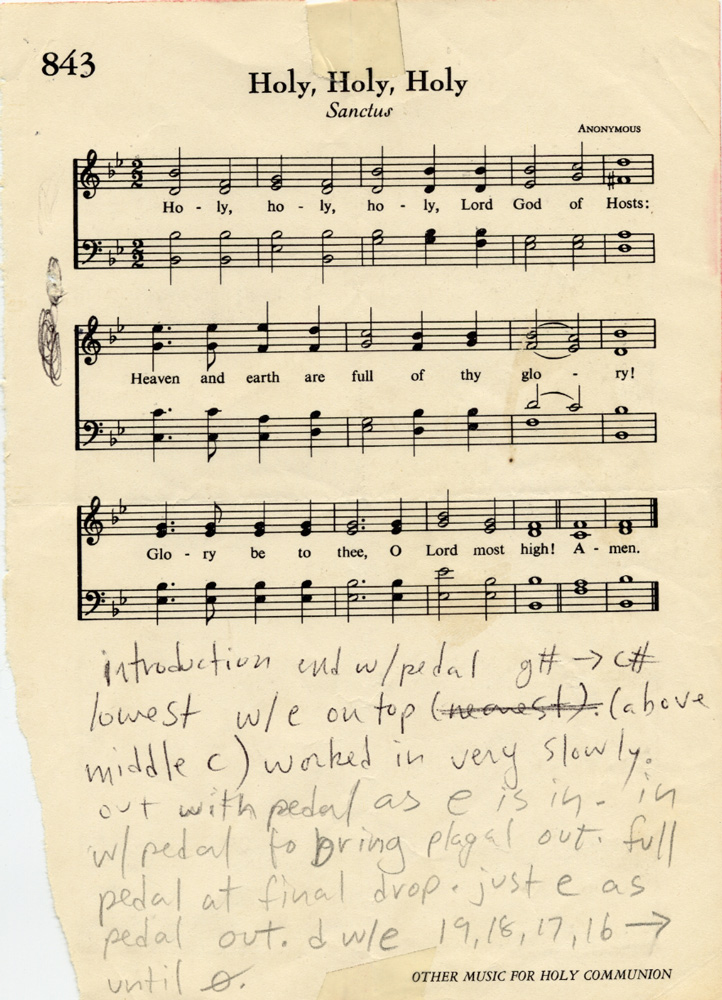 843
Holy, Holy, Holy
Sanctus
ANONYMOUS
Ho - ly, ho - ly, ho - ly, Lord God of Hosts:
Heaven and earth are full of thy glo - ry!
Glo - ry be to thee, O Lord most high! A - men.
introduction end w/pedal g# → c#
lowest w/e on top (nearest). (above
middle c) worked in very slowly.
out with pedal as e is in. in
w/pedal to bring plagal out. full
pedal at final drop. just e as
pedal out. d w/e 19, 18, 17, 16 →
until 0.
OTHER MUSIC FOR HOLY COMMUNION